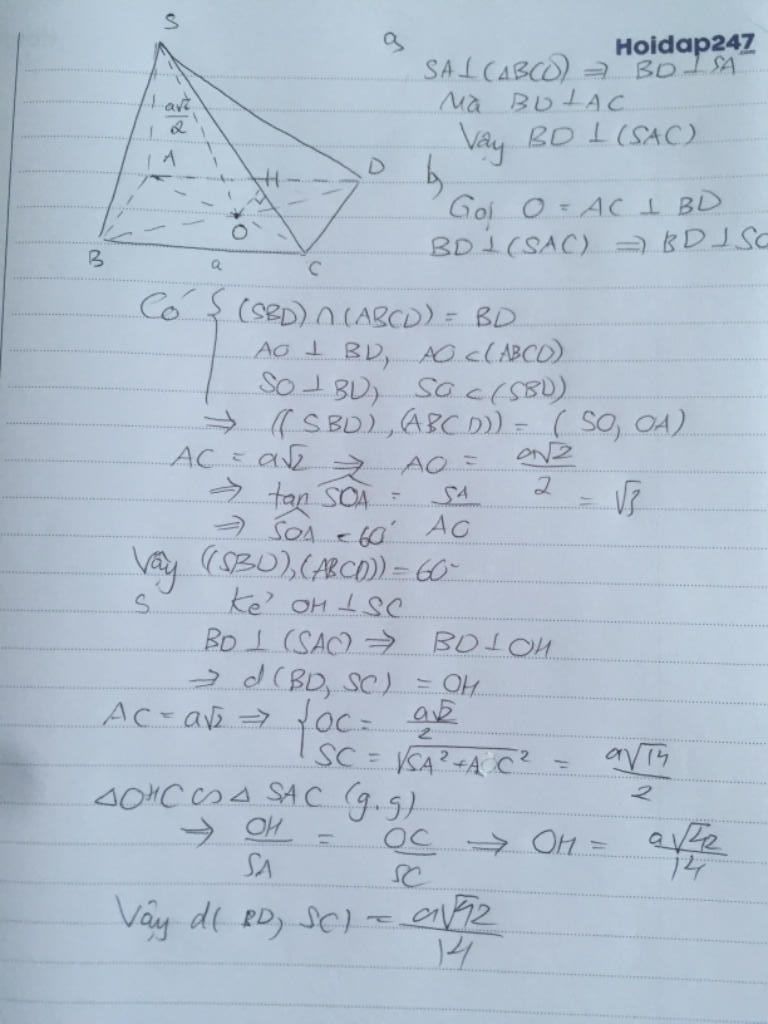 Hoidap247
S
a√2/2
A
H
D
O
B
a
C
a,
SA⊥(ABCD) ⇒ BD⊥SA
Mà BD⊥AC
Vậy BD⊥(SAC)
b,
Gọi O = AC ⊥ BD
BD⊥(SAC) ⇒ BD⊥SO
Có { (SBD)∩(ABCD) = BD
AO ⊥ BD, AO⊂(ABCD)
SO⊥BD, SO⊂(SBD)
⇒ ((SBD),(ABCD)) = (SO, OA)
AC = a√2 ⇒ AO = a√2/2
⇒ tan SOA = SA/AO = √3
⇒ SOA = 60°
Vậy ((SBD),(ABCD)) = 60°
Kẻ OH⊥SC
BD⊥(SAC) ⇒ BD⊥OH
⇒ d(BD, SC) = OH
AC = a√2 ⇒ { OC = a√2/2
SC = √SA²+AC² = a√14/2
△OHC ∽ △SAC (g.g)
⇒ OH/SA = OC/SC ⇒ OH = a√42/14
Vậy d(BD, SC) = a√42/14